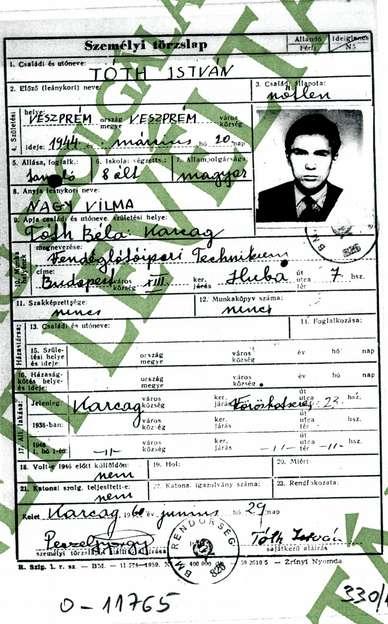 Személyi törzslap
Állandó Ideiglenes
Férfi Nő
1. Családi és utóneve:
TÓTH ISTVÁN
2. Előző (leánykori) neve:
3. Családi állapota:
nőtlen
4. Születési
helye VESZPRÉM ország megye VESZPRÉM város község
ideje: 1944 március hó 20 nap
5. Állása, foglalk.: 6. Iskolai végzetts.: 7. Állampolgársága:
tanuló 8 ált magyar
8. Anyja leánykori neve:
NAGY VILMA
9. Apja családi és utóneve, születési helye:
Tóth Béla Karcag
megnevezése:
Vendéglátóipari Technikum
címe:
Budapest város község XIII ker. járás Huba út utca tér 7 hsz.
11. Szakképzettsége: 12. Munkakönyv száma:
nincs nincs
Házastársa:
13. Családi és utóneve: 14. Foglalkozása:
15. Születési helye és ideje: ország megye város község év hó nap
16. Házasságkötés helye és ideje: ország megye város község év hó nap
17. Áll. lakása:
Jelenleg: Karcag város község ker. járás út utca tér 23. hsz.
1938-ban: város község ker. járás út utca tér hsz.
1945 I. hó 1-én -11- város község ker. járás -11- út utca tér -11- hsz.
18. Volt-e 1945 előtt külföldön: 19. Hol: 20. Miért:
nem
21. Katonai szolg. teljesített-e: 22. Katona igazolvány száma: 23. Rendfokozata:
nem
Kelet Karcag 60 junius hó 29 nap
Tóth István
személyi törzslap kiállító aláírása sajátkezű aláírás
BM RENDŐRSÉG
R. Szig. 1. r. sz. — BM. — Zrínyi Nyomda
0-11765
330/1